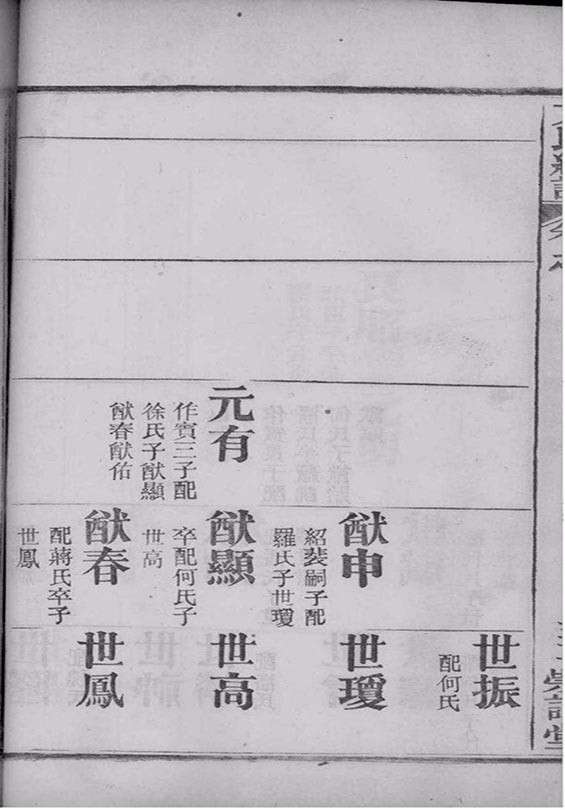 元有
作賓三子配
徐氏子猷顯
猷春猷佑
猷申
紹嗣子配
羅氏子世瓊
猷顯
卒配何氏子
世高
猷春
配蔣氏卒子
世鳳
世振
配何氏
世瓊
世高
世鳳